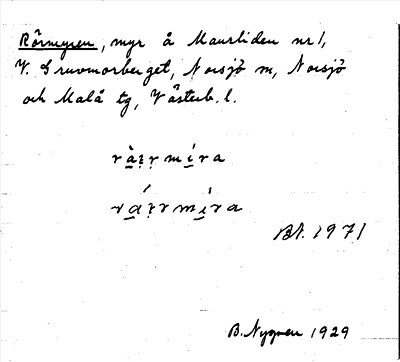 Rörmyren, myr å Maurliden nr 1,
V. Gruvmorberget, Norsjö sn, Norsjö
och Malå tg, Västerb. l.
mira
mira
Bt. 1971
B. Nygren 1929